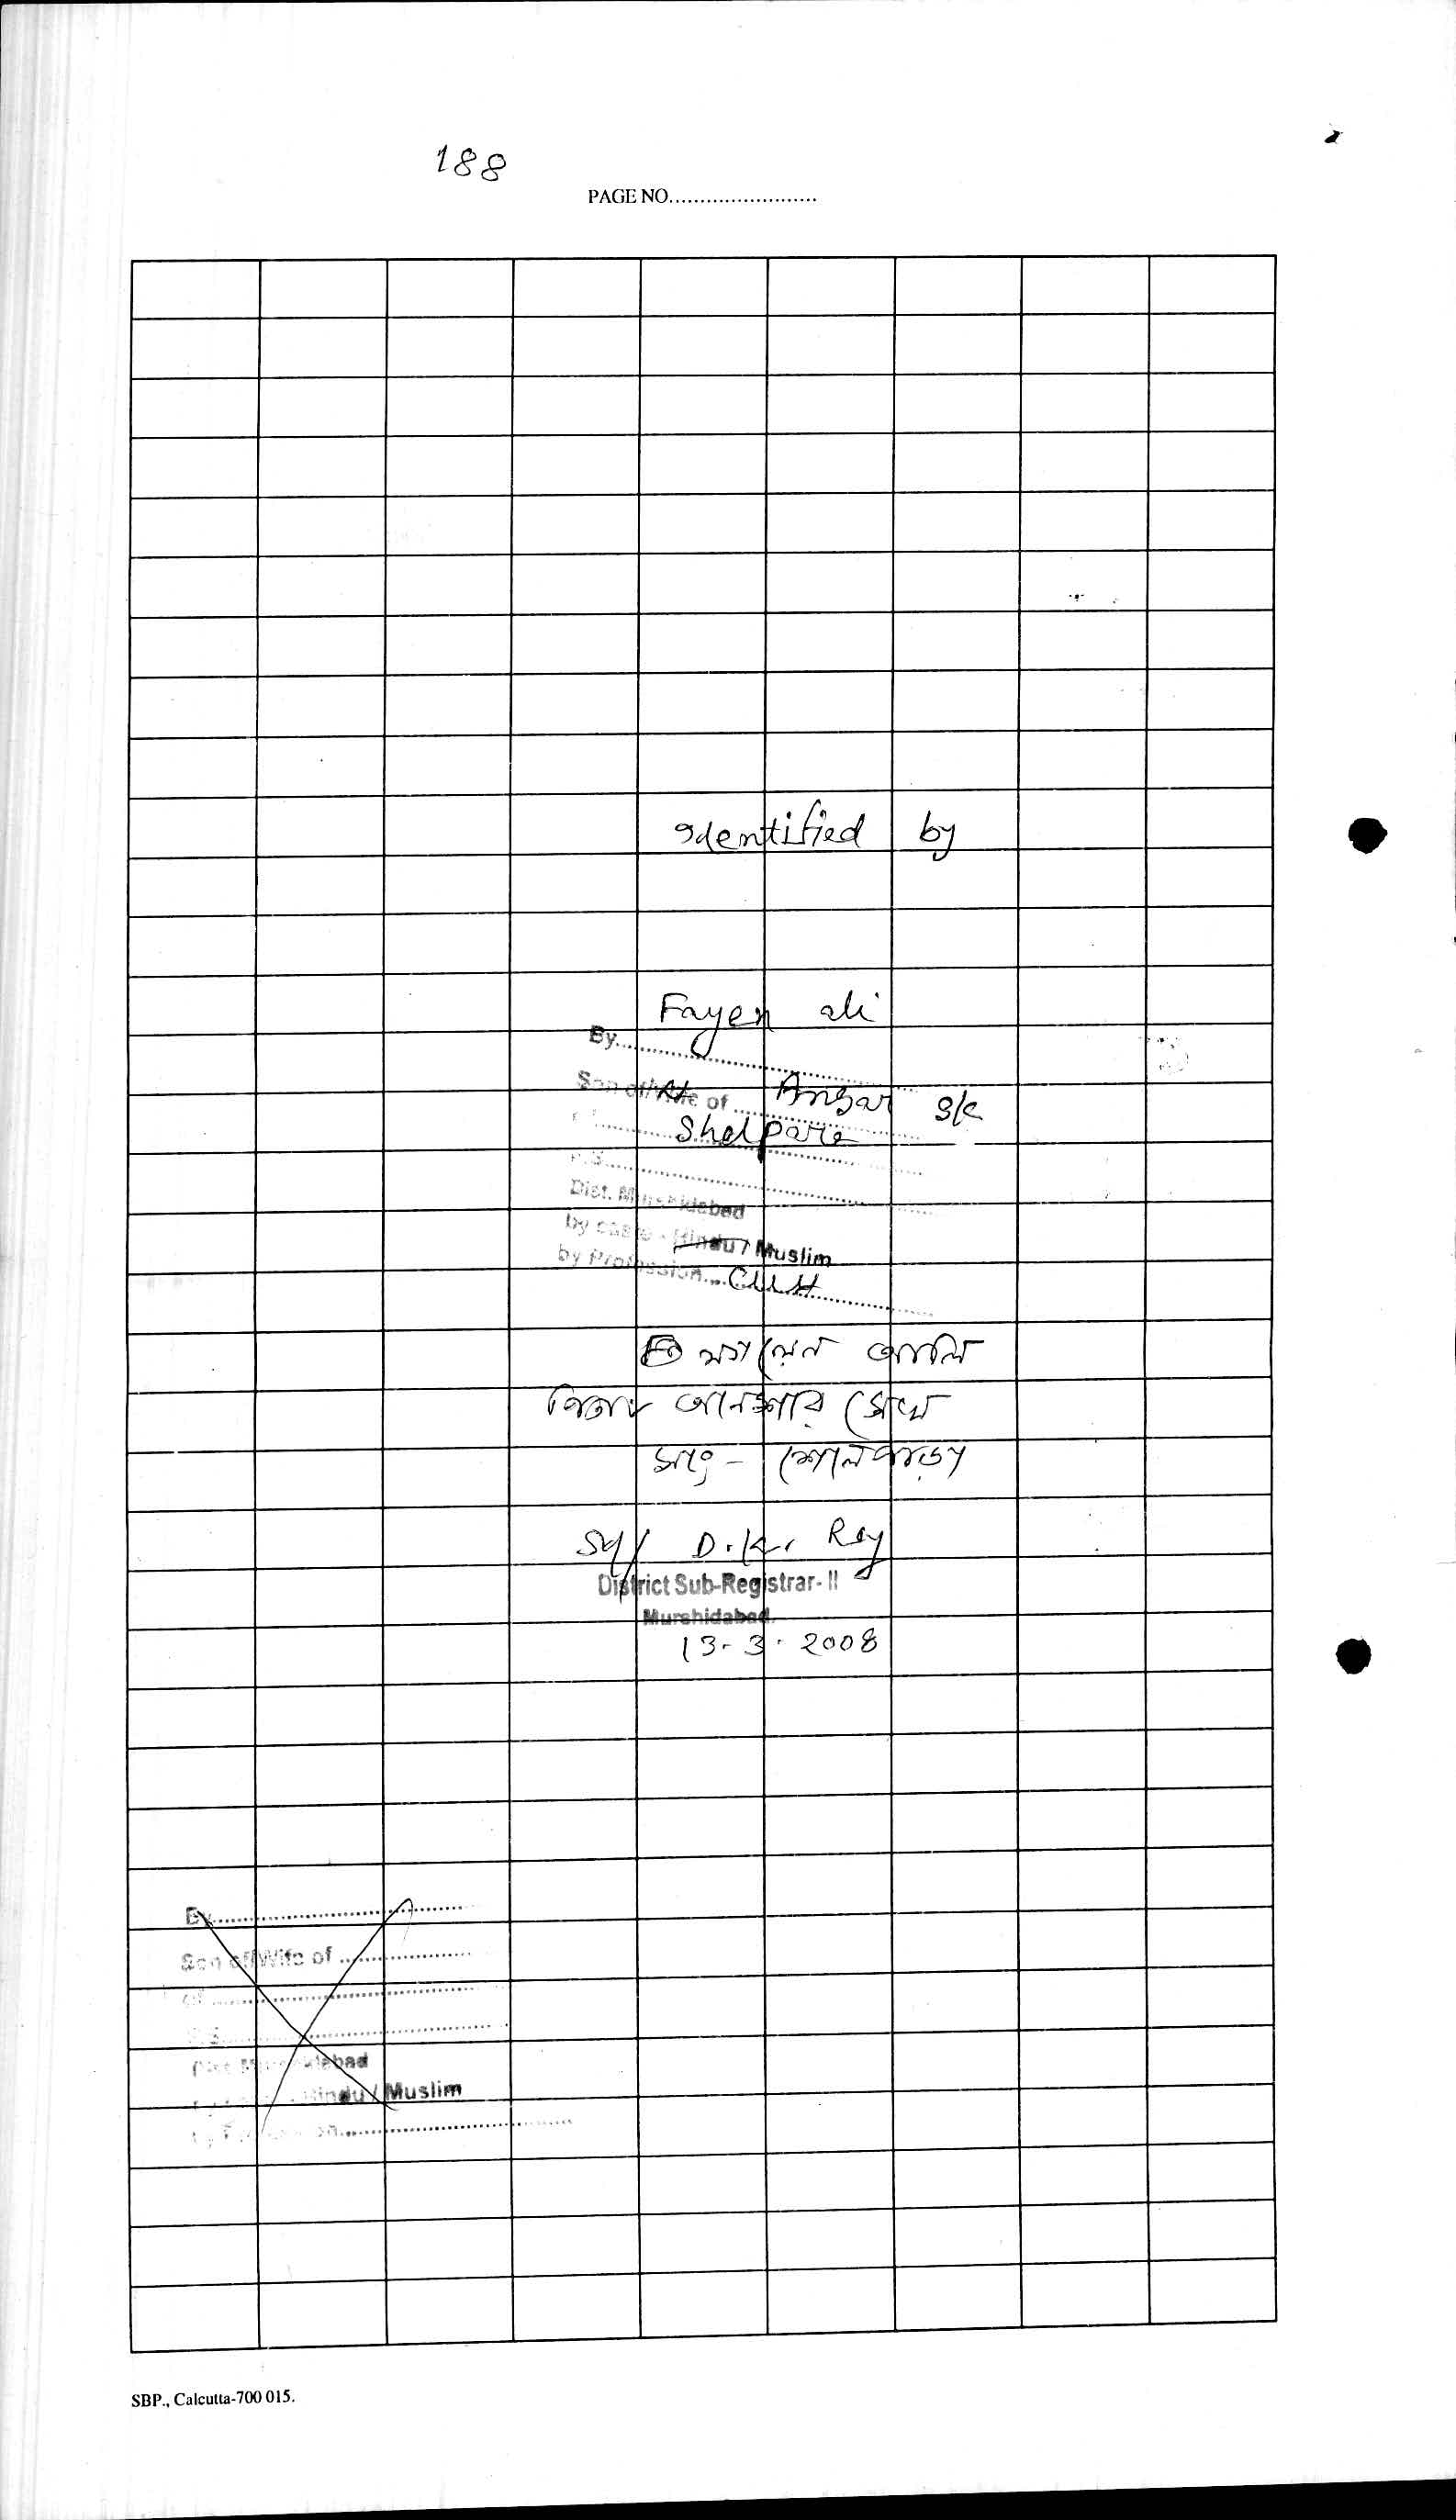 188
PAGE NO........................
Identified by
Fayen ali
By..............................
Son of/Wife of .......... Angar S/K
Shelpara
P.S..............................
Dist. Murshidabad
by caste - Hindu / Muslim
by Profession.... Cult
আলি
পিতা আনসার সেখ
সাং - শেলপাড়া
Sd/ D. K. Roy
District Sub-Registrar- II
Murshidabad.
13-3-2008
By..............................
Son of/Wife of ....................
of ..............................
P.S..............................
Dist. Murshidabad
by caste - Hindu / Muslim
by Profession..............................
SBP., Calcutta-700 015.